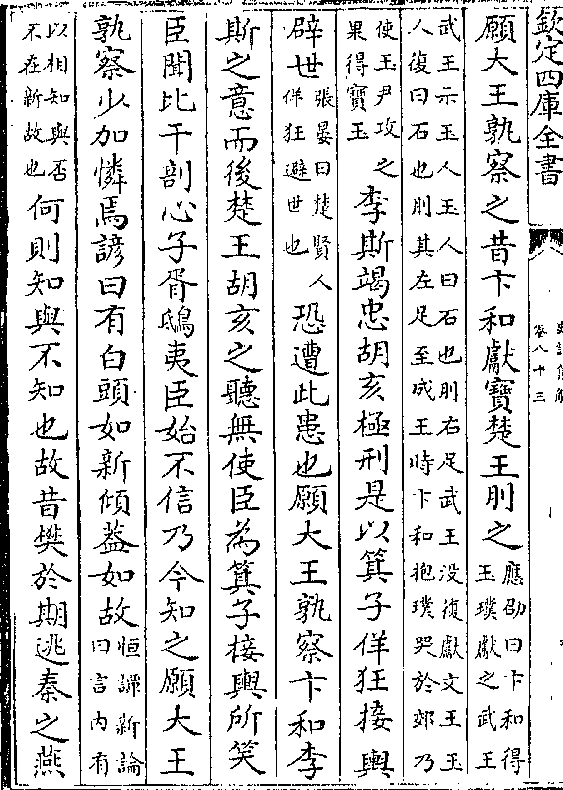 欽定四庫全書
卷八十三
願大王孰察之昔卞和獻寶楚王刖之
應劭曰卞和得
玉璞獻之武王
武王示玉人玉人曰石也刖右足武王没復獻文王玉
人復曰石也刖其左足至成王時卞和抱璞哭於郊乃
使玉尹攻之
果得寶玉
李斯竭忠胡亥極刑是以箕子佯狂接輿
辟世
張晏曰楚賢人
佯狂避世也
恐遭此患也願大王孰察卞和李
斯之意而後楚王胡亥之聽無使臣為箕子接輿所笑
臣聞比干剖心子胥鴟夷臣始不信乃今知之願大王
孰察少加憐焉諺曰有白頭如新傾蓋如故
桓譚新論
曰言内有
以相知與否
不在新故也
何則知與不知也故昔樊於期逃秦之燕